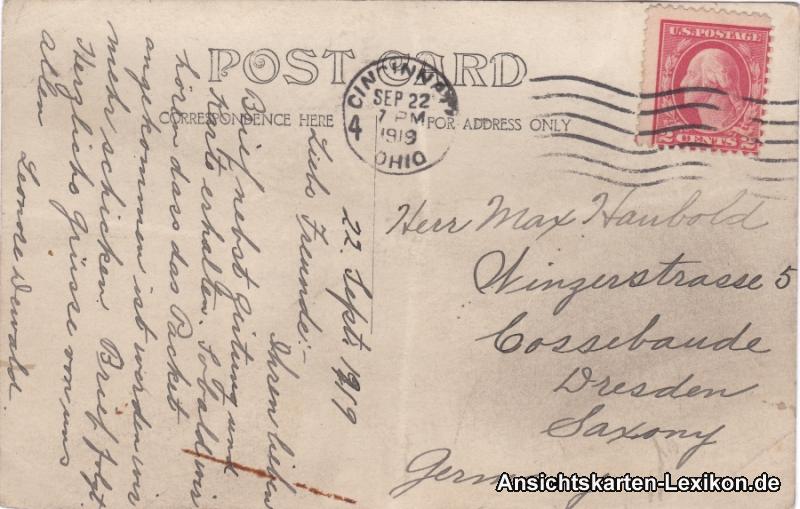 POST CARD
CORRESPONDENCE HERE
FOR ADDRESS ONLY
CINCINNATI
SEP 22
7 PM
1919
OHIO
4
U.S. POSTAGE
2 CENTS 2
22. Sept. 1919
Liebe Freunde:-
Ihren lieben
Brief nebst Zeitung und
Karte erhalten. Sobald wir
hören dass das Packet
angekommen ist werden wir
mehr schicken. Brief folgt.
Herzliche Grüsse von uns
Allen
Leonore Dewald.
Herr Max Haubold
Winzerstrasse 5
Cossebaude
Dresden
Saxony
Germany
Ansichtskarten-Lexikon.de